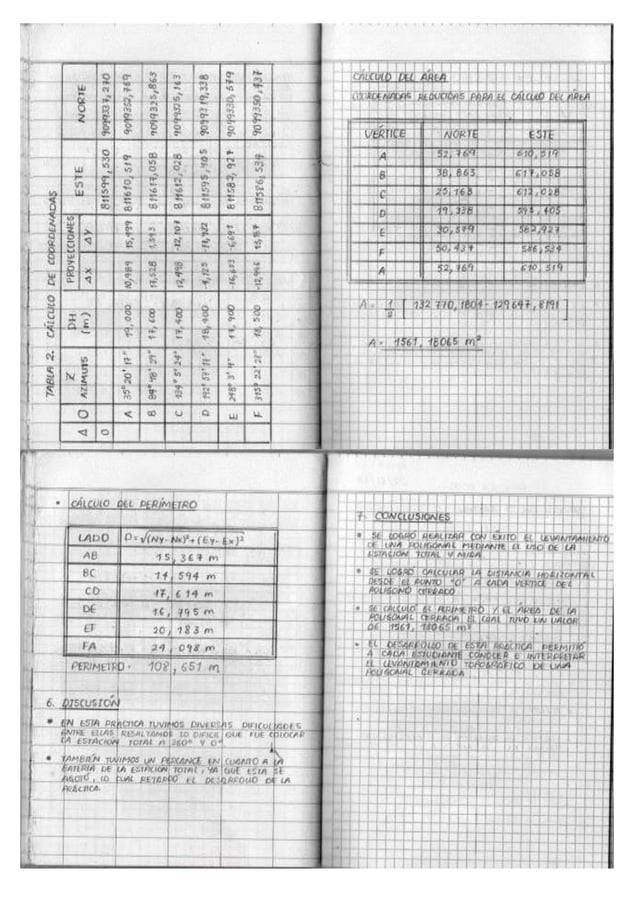 TABLA 2. CÁLCULO DE COORDENADAS
Δ O Z AZIMUTS DH (m) PROYECCIONES ΔX ΔY ESTE NORTE
O 811599,530 9099337,270
A 35° 20' 17" 19,000 10,989 15,499 811610,519 9099352,769
B 84° 48' 29" 17,600 17,528 1,593 811617,058 9099325,863
C 134° 5' 24" 17,400 12,498 -12,107 811612,028 9099325,163
D 18,400 811595,405 9099319,338
E 248° 3' 4" 17,900 -16,603 -6,691 811582,927 9099330,579
F 315° 22' 18,500 811586,534 9099350,437
CÁLCULO DEL ÁREA
COORDENADAS REDUCIDAS PARA EL CÁLCULO DEL ÁREA
VÉRTICE NORTE ESTE
A 52,769 610,519
B 38,863 617,058
C 25,163 612,028
D 19,338 595,405
E 30,579 582,927
F 50,437 586,534
A 52,769 610,519
A = 1/2 [ 132 770,1804 - 129647,8191 ]
A = 1561,18065 m²
• CÁLCULO DEL PERÍMETRO
LADO D=√(Ny-Nx)²+(Ey-Ex)²
AB 15,367 m
BC 14,594 m
CD 17,614 m
DE 16,795 m
EF 20,183 m
FA 24,098 m
PERIMETRO = 108,651 m
6. DISCUSIÓN
• EN ESTA PRÁCTICA TUVIMOS DIVERSAS DIFICULTADES
ENTRE ELLAS RESALTAMOS LO DIFÍCIL QUE FUE COLOCAR
LA ESTACIÓN TOTAL A 360° Y 0°
• TAMBIÉN TUVIMOS UN PERCANCE EN CUANTO A LA
BATERÍA DE LA ESTACIÓN TOTAL, YA QUE ESTA SE
AGOTÓ, LO CUAL RETARDÓ EL DESARROLLO DE LA
PRÁCTICA.
7. CONCLUSIONES
• SE LOGRÓ REALIZAR CON ÉXITO EL LEVANTAMIENTO
DE UNA POLIGONAL MEDIANTE EL USO DE LA
ESTACIÓN TOTAL Y MIRA
• SE LOGRÓ CALCULAR LA DISTANCIA HORIZONTAL
DESDE EL PUNTO "O" A CADA VÉRTICE DEL
POLÍGONO CERRADO
• SE CALCULÓ EL PERÍMETRO Y EL ÁREA DE LA
POLIGONAL CERRADA EL CUAL TUVO UN VALOR
DE 1561,18065 m²
• EL DESARROLLO DE ESTA PRÁCTICA PERMITIÓ
A CADA ESTUDIANTE CONOCER E INTERPRETAR
EL LEVANTAMIENTO TOPOGRÁFICO DE UNA
POLIGONAL CERRADA